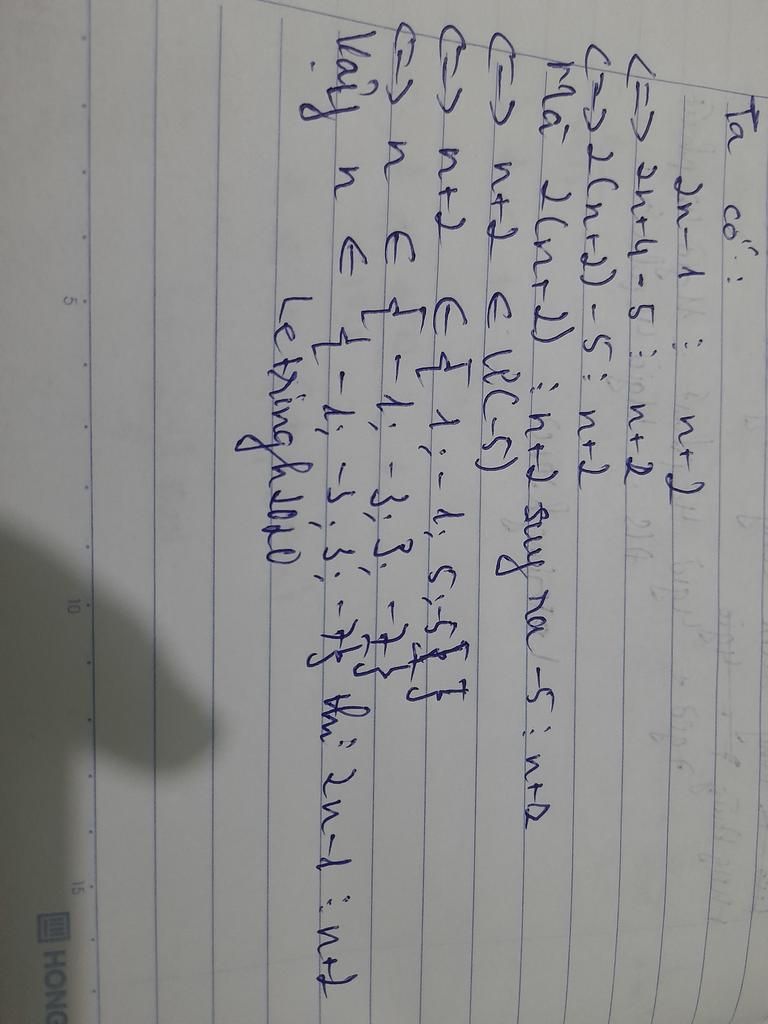 Ta có:
2n-1 ⋮ n+2
<=> 2n+4-5 ⋮ n+2
<=> 2(n+2)-5 ⋮ n+2
Mà 2(n+2) ⋮ n+2 suy ra -5 ⋮ n+2
<=> n+2 ∈ Ư(-5)
<=> n+2 ∈ {1; -1; 5; -5}
<=> n ∈ {-1; -3; 3; -7}
Vậy n ∈ {-1; -3; 3; -7} thì 2n-1 ⋮ n+2
5
10
15
HONG